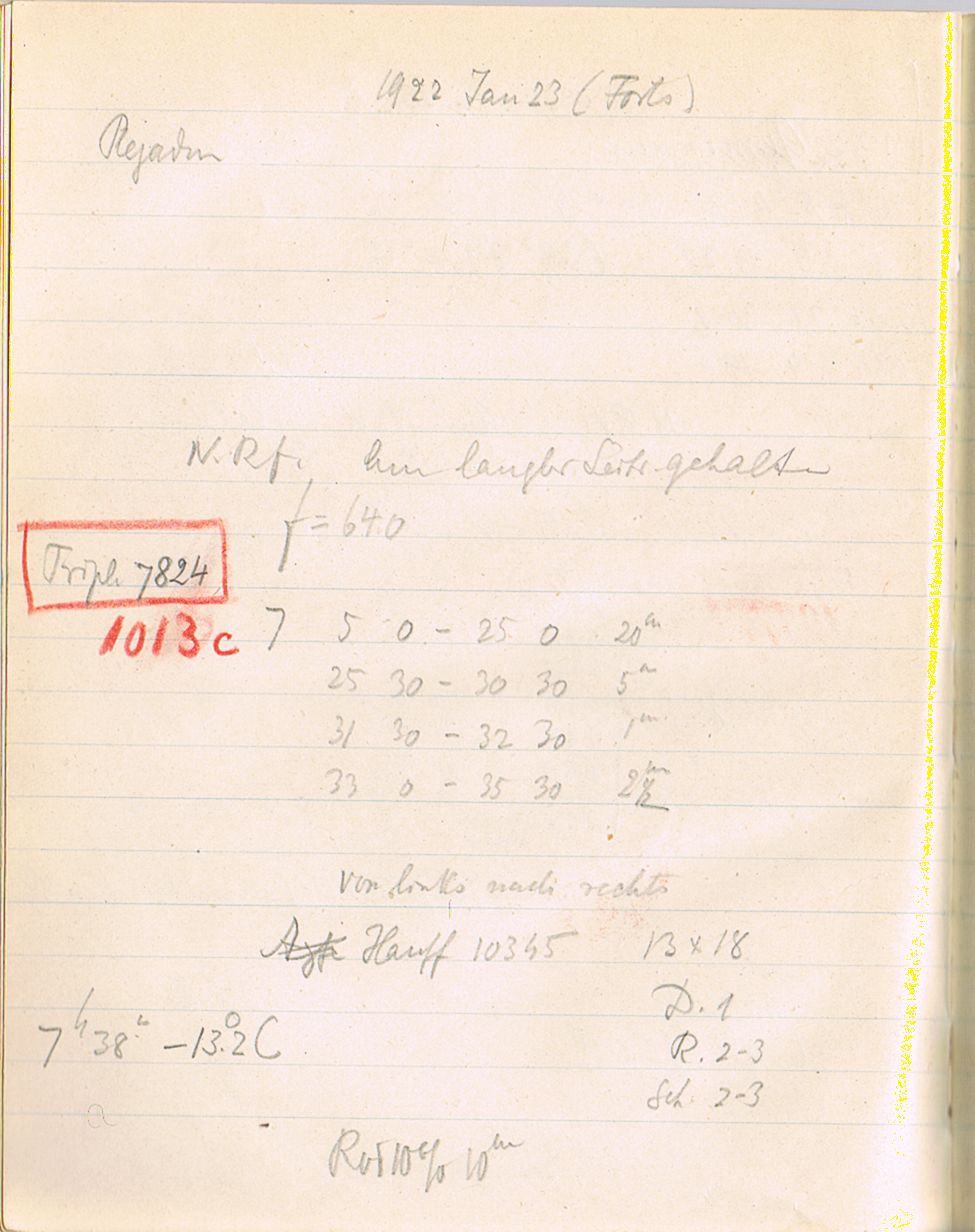 1922 Jan 23 (Forts)
N. Rf. langer Seite gehalten
f = 640
Tripl. 7824
1013 c
7 5 0 - 25 0 20m
25 30 - 30 30 5m
31 30 - 32 30 1m
33 0 - 35 30
von links nach rechts
Hauff 10345 13 x 18
D. 1
7h 38m -13.°2 C
R. 2-3
Sch. 2-3
a
10% 10m